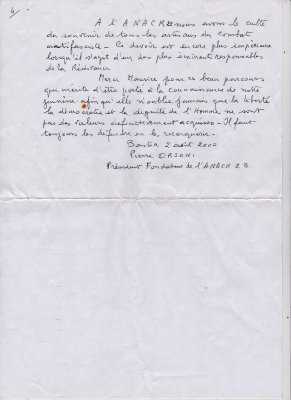 4/
A l'ANACR nous avons le culte
du souvenir de tous les artisans du combat
antifasciste. Ce devoir est encore plus impérieux
lorsqu'il s'agit d'un des plus éminents responsables
de la Résistance
Merci Maurice pour ce beau parcours
qui mérite d'être porté à la connaissance de notre
jeunesse afin qu'elle n'oublie jamais que la liberté
la démocratie et la dignité de l'Homme ne sont
pas des valeurs définitivement acquises - Il faut
toujours les défendre ou les reconquérir -
Bastia 2 août 2000
Pierre ORSONI
Président Fondateur de l'ANACR 2.B.